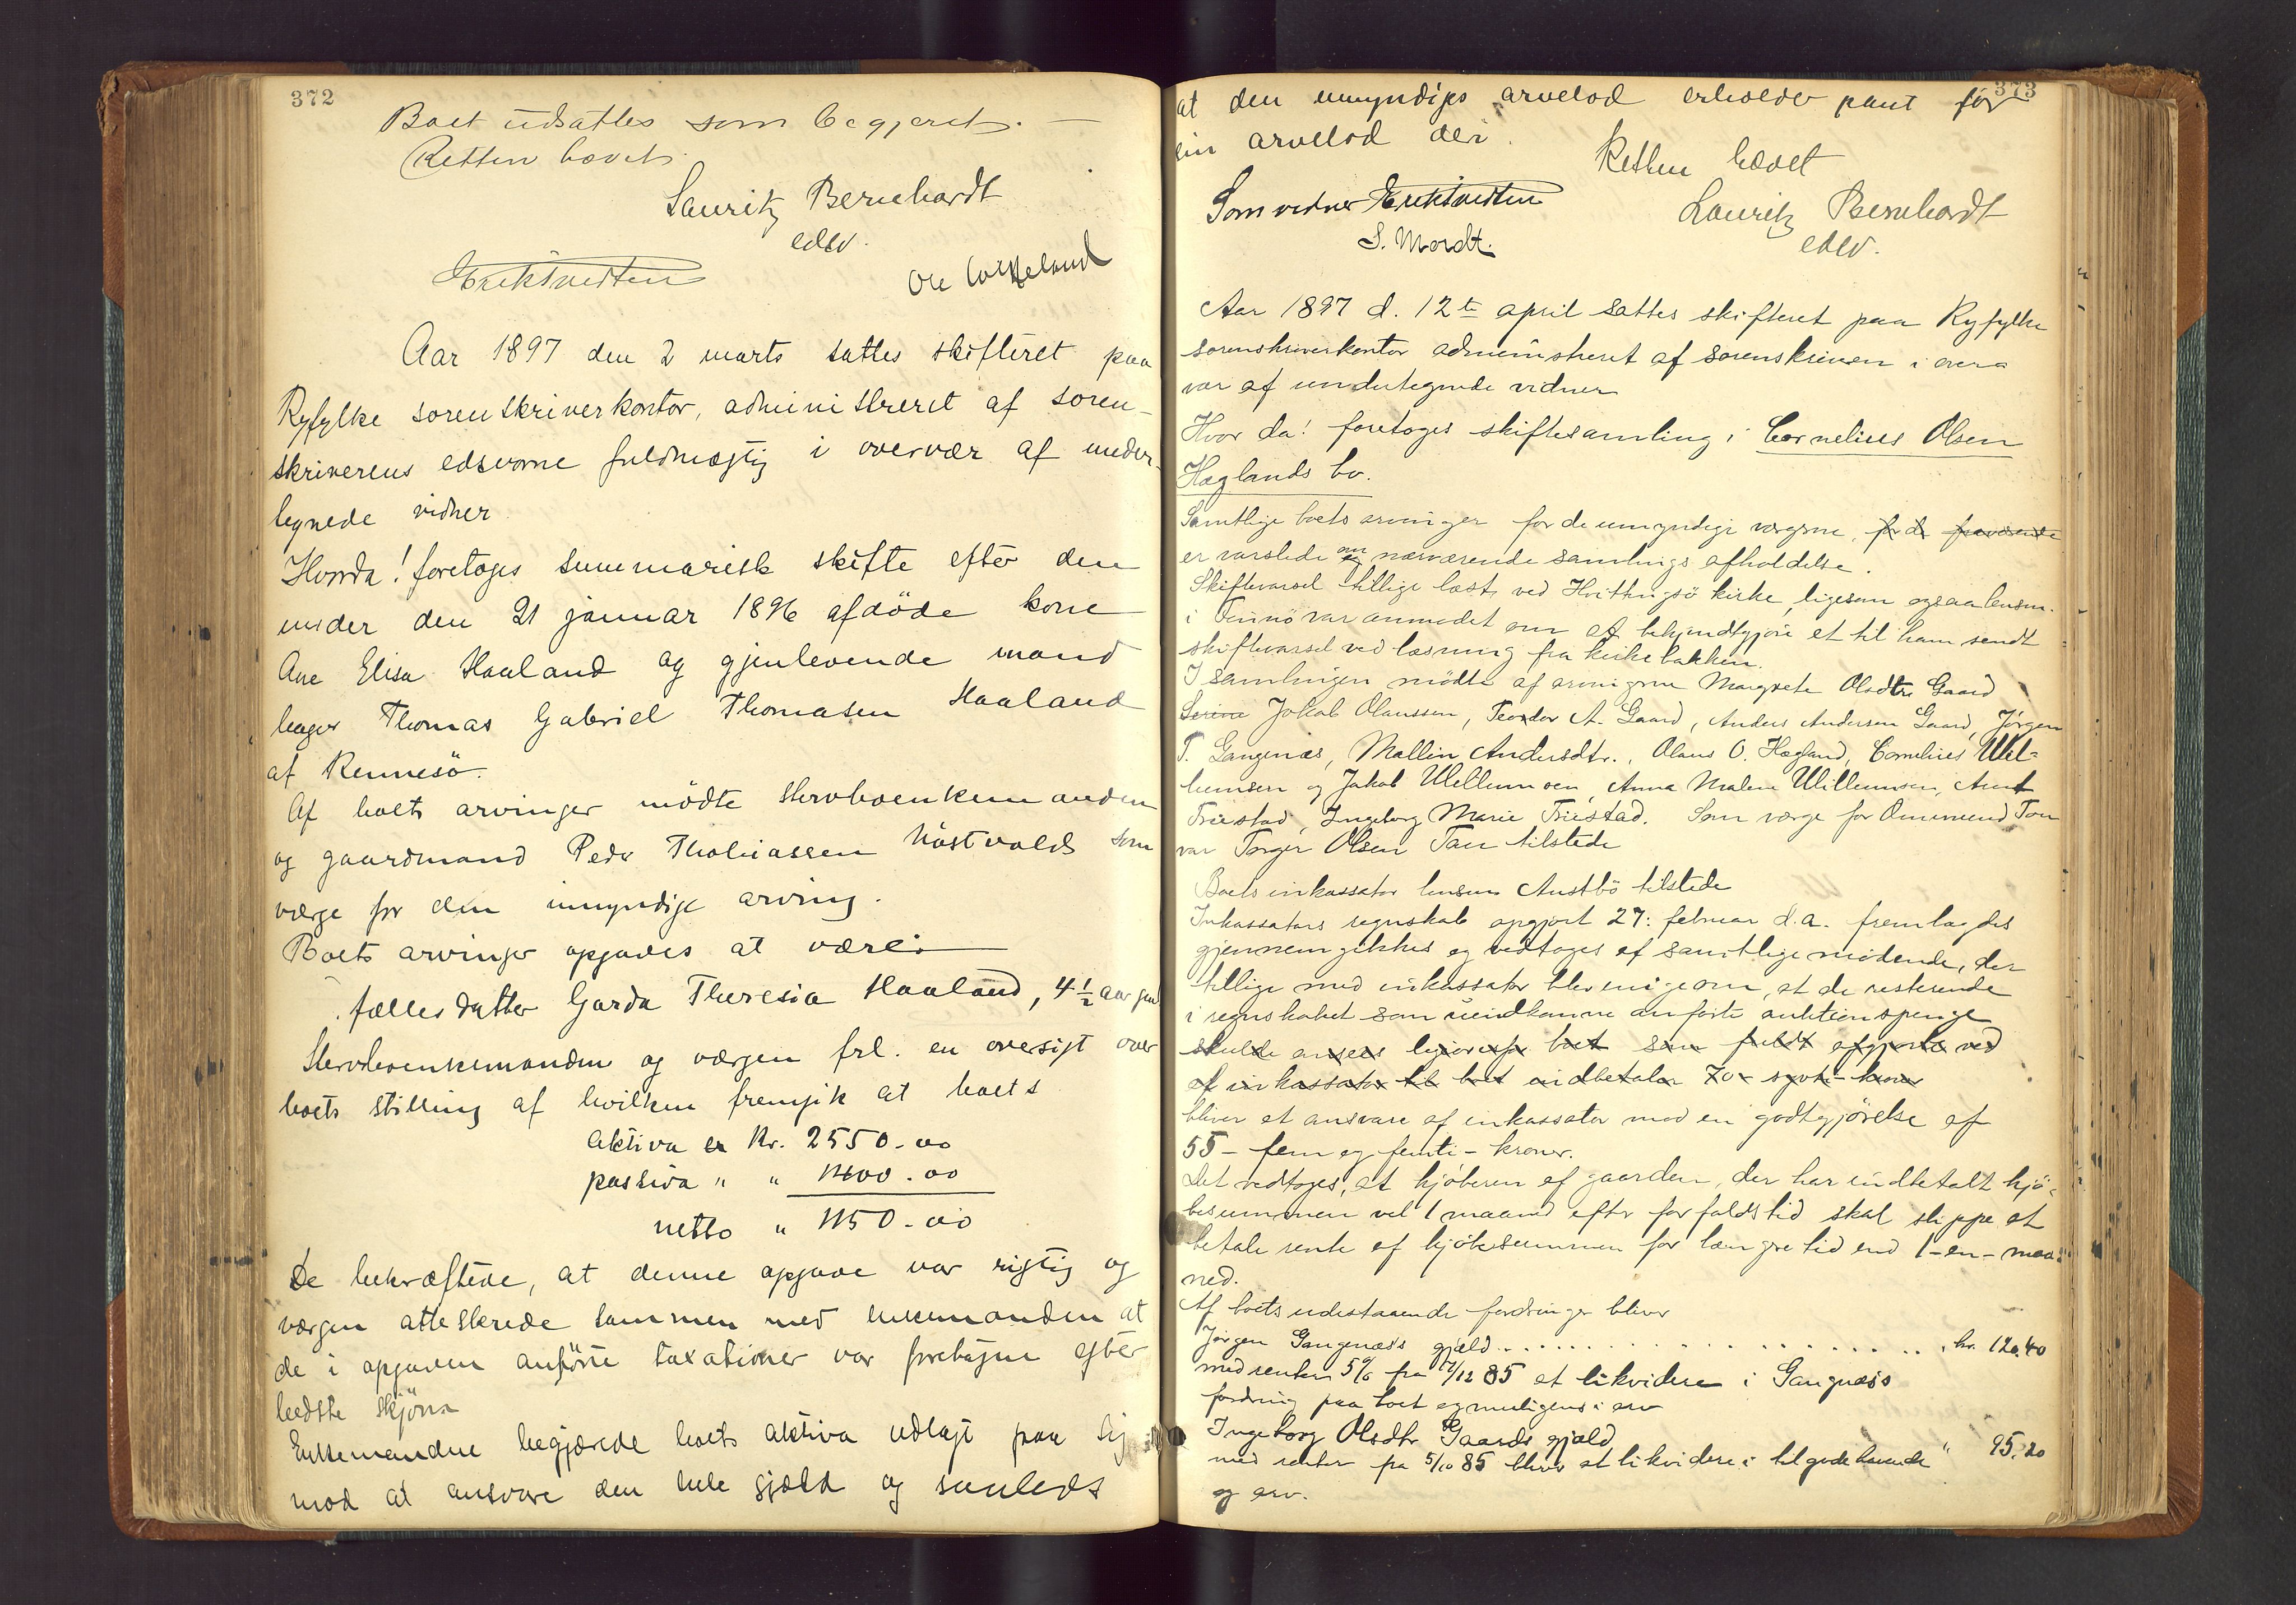 372
Boet udsattes som begjeret. —
Retten hævet
Lauritz Bernhardt
edsv.
Erik Tvedten
Ole
Aar 1897 den 2 marts sattes skifteret paa
Ryfylke sorenskriverkontor, administreret af soren-
skriverens edsvorne fuldmægtig i overvær af under-
tegnede vidner
Hvorda! foretoges summarisk skifte efter den
under den 21 januar 1896 afdöde kone
Ane Elisa Haaland og gjenlevende mand
Thomas Gabriel Thomasen Haaland
af Rennesö.
Af boets arvinger mödte sterboenkemanden
og gaardmand Peder som
værge for den umyndige arving.
Boets arvinger opgaves at være:
fælles datter Garda Theresia Haaland, 4 1/2 aar gml
Sterboenkemanden og værgen frl. en oversigt over
boets stilling af hvilken fremgik at boets
aktiva er Kr. 2550.00
passiva " " 1400.00
netto " 1150.00
De bekræftede, at denne opgave var rigtig og
værgen atteskrede sammen med enkemanden at
de i opgaven anförte taxationer var foretagne efter
bedste skjön
Enkemanden begjærede boets aktiva udlagt paa sig
mod at ansvare den hele gjæld og saaledes
373
at den umyndiges arvelod erholder pant for
sin arvelod deri.
Retten hævet
Som vidner Erik Tvedten
Lauritz Bernhardt
S. Mordt.
edsv.
Aar 1897 d. 12te april sattes skifteret paa Ryfylke
sorenskriverkontor administreret af sorenskriveren i over-
vær af undertegnede vidner
Hvor da! foretoges skiftesamling i Cornelius Olsen
Haglands bo.
Samtlige boets arvinger for de umyndige værgerne, for de fraværende
er varslede om nærværende samlings afholdelse.
Skiftevarsel tillige læst ved Hvittingsö kirke, ligesom ogsaa lensm.
i Finnö var anmodet om at bekjendtgjöre et til ham sendt
skiftevarsel ved læsning fra kirkebakken.
I samlingen mödte af arvingerne Margrete Olsdtr Gaard
Serina Jakob Olaussen, Teodor A. Gaard, Anders Andersen Gaard, Jörgen
T. Gangenæs, Mallin Andersdtr., Olaus O. Hagland, Cornelius Wil-
lumsen og Jakob Willumsen, Anna Malene Willumsen,
Ingeborg Marie Som værge for Ommund Tou
var Torger Olsen Tou tilstede
Boets inkassator lensm. Austbö tilstede
Inkassators regnskab opgjort 27: februar d.a. fremlagdes
gjennemgikkes og vedtoges af samtlige mödende, der
tillige med inkassator blev enige om, at de resterende
i regnskabet som uindkomne anförte auktionspenge
skulde ansees boet som fuldt opgjorte ved
af inkassator til boet indbetaler 70 - sytti - kroner
bliver at ansvare af inkassator mod en godtgjörelse af
55 - fem og femti - kroner.
Det vedtoges, at kjöberen af gaarden, der har indbetalt kjö-
besummen vel 1 maaned efter forfaldstid skal slippe at
betale rente af kjöbesummen for længre tid end 1 - en - maa-
ned.
Af boets udestaaende fordringer bliver
Jörgen Gangenæs's gjæld . . . . . . kr. 120.40
med renter 5% fra 11/12 85 at likvidere i Gangnæs's
fordring paa boet og muligens i arv
Ingeborg Olsdtr Gaards gjæld
med renter fra 5/10 85 bliver at likvidere i tilgodehavende " 95.20
og arv.